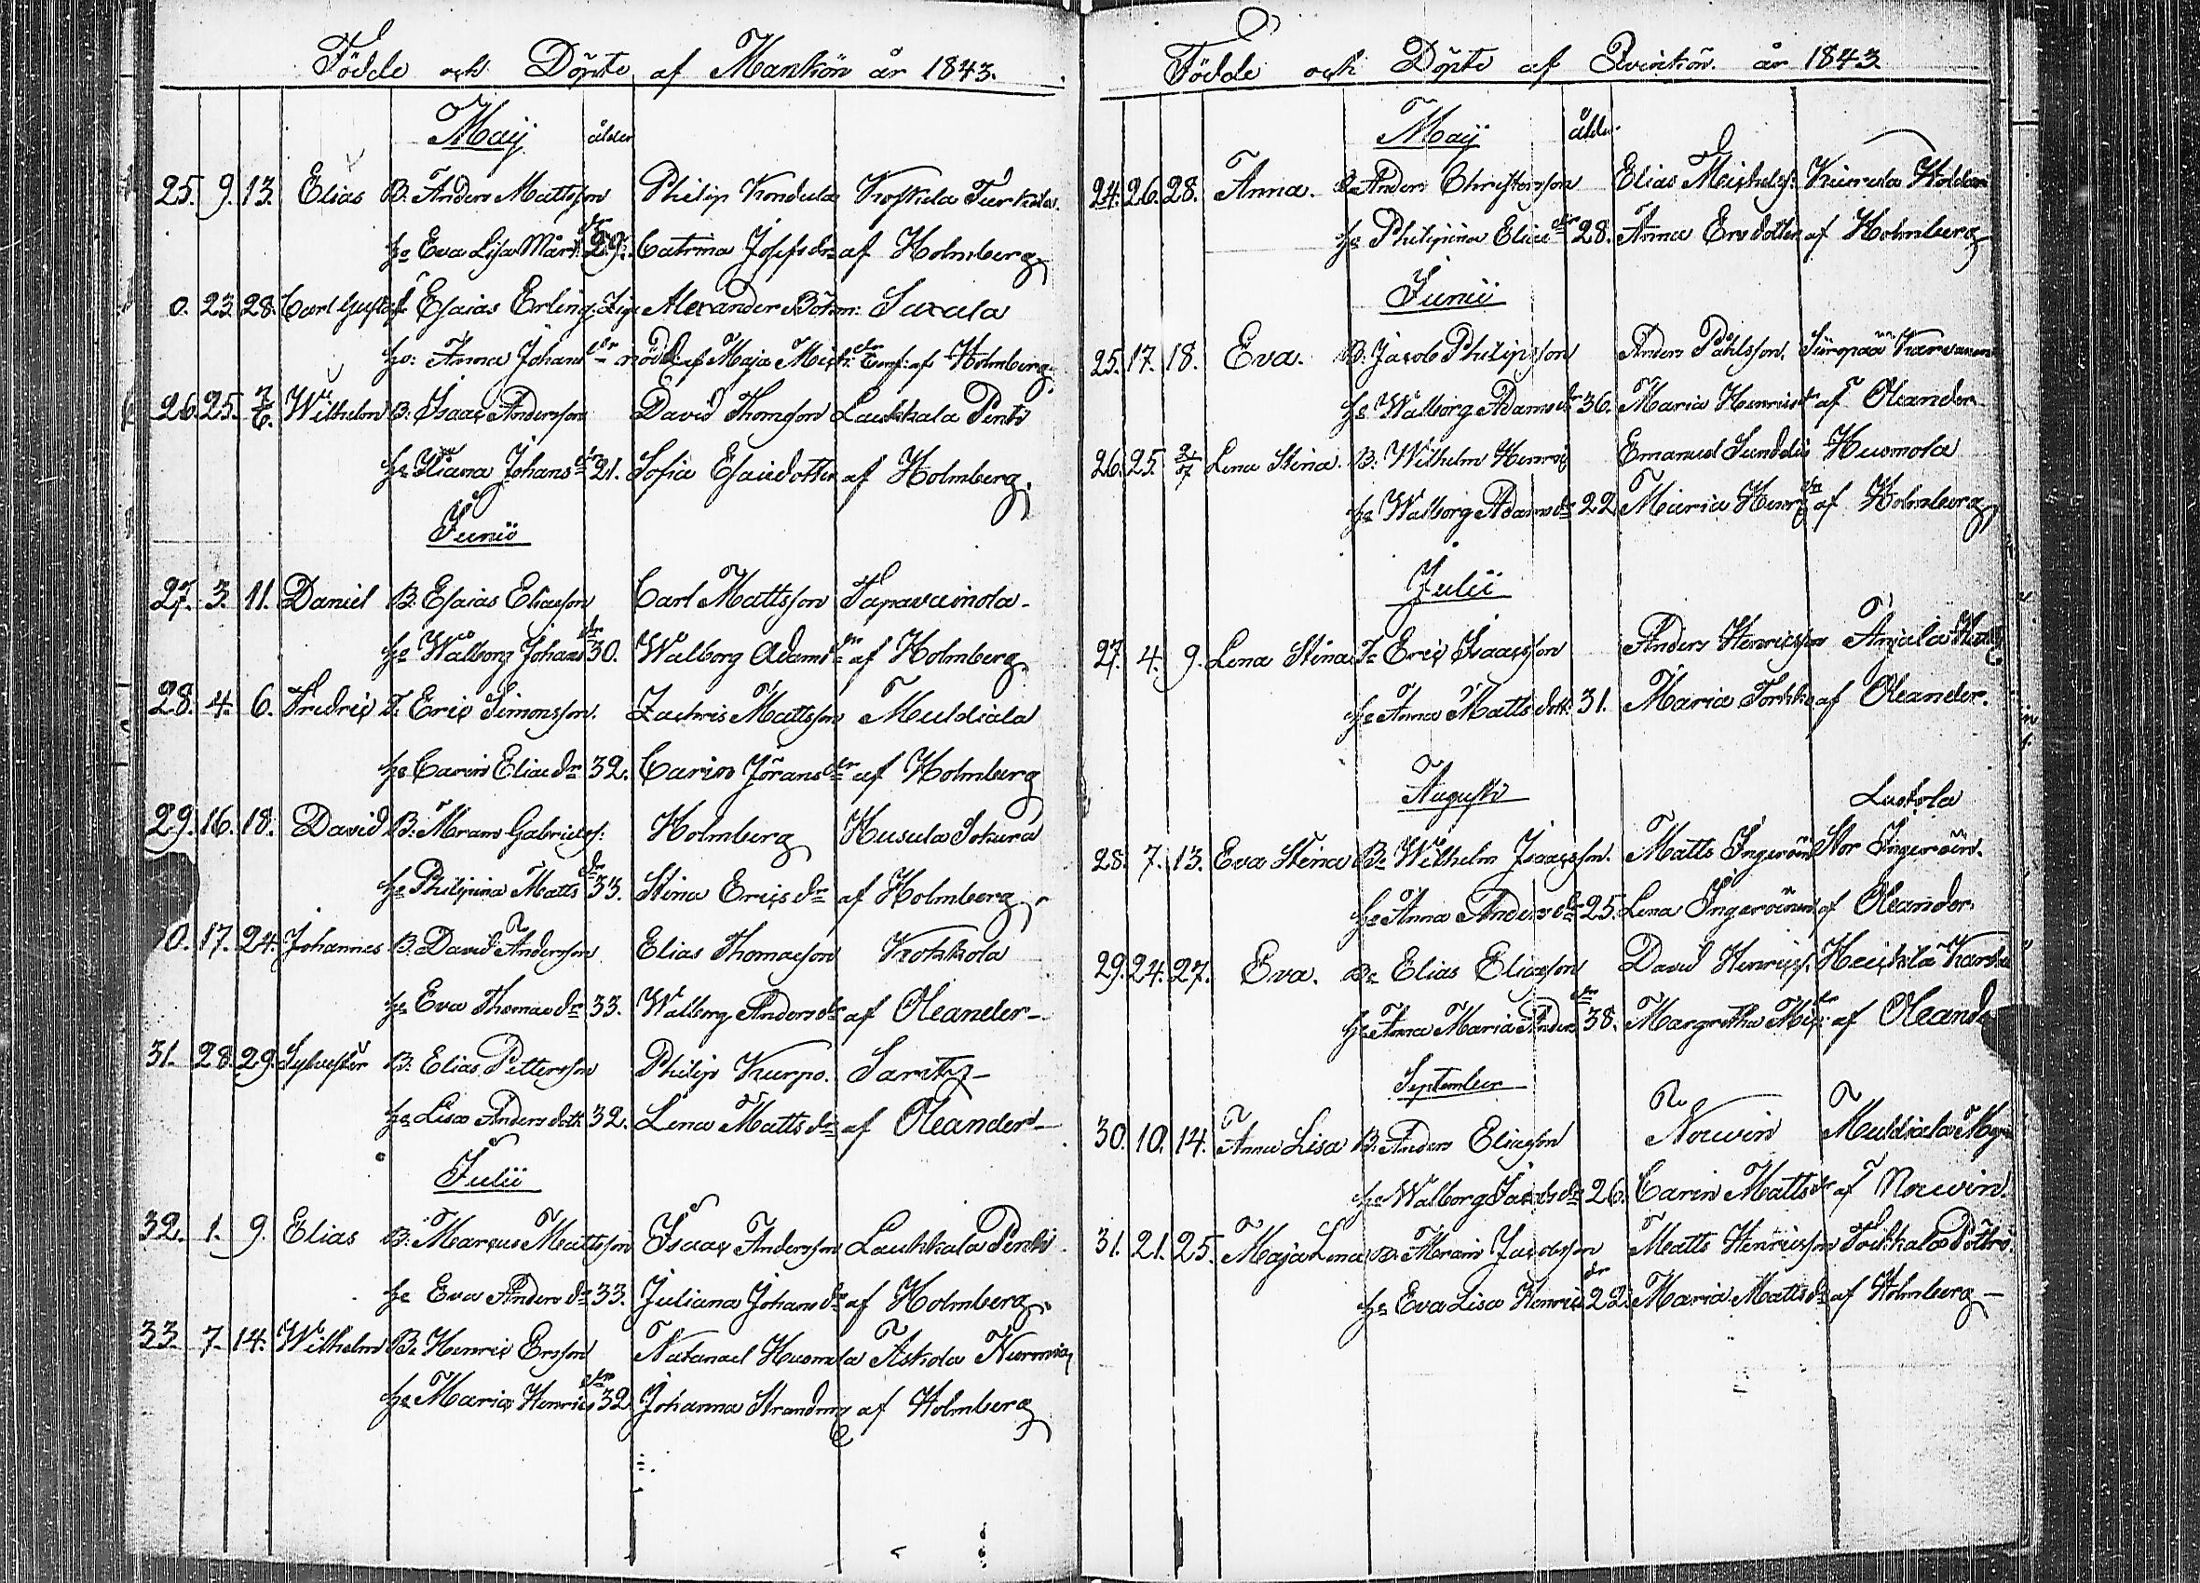 Födde och Döpte af Mankön år 1843.
Maij ålder
25. 9. 13. Elias B. Anders Mattsson Philip Kondula Koskela Turkula.
hs Eva Lisa Märt. dr 29. Catrina Josefs dr af Holmberg
0. 23. 28. Carl Gustaf Esaias Erling, Alexander Böhm: Saxala
hs: Anna Johans dr född af Maja Mich: af Holmberg.
26. 25. 7/6. Wilhelm B. Isaac Andersson David Thomsson Laukkala Pentti
hs Juliana Johans dr 21. Sofia Esaiedotter af Holmberg.
Junii
27. 3. 11. Daniel B. Esaias Eliasson Carl Mattsson Tapavainola
hs Walborg Johans dr 30. Walborg Adams dr af Holmberg.
28. 4. 6. Fredric T. Eric Simonsson. Zachris Mattsson Muldiala
hs Carin Elias dr 32. Carin Jörans dr af Holmberg
29. 16. 18. David B. Abram Gabriels: Holmberg Husula Sokura
hs Philipina Matts dr 33. Stina Erics dr af Holmberg
0. 17. 24. Johannes B. David Andersson Elias Thomasson Kotkkola
hs Eva Thomas dr 33. Walborg Anders dr af Oleander
31. 28. 29. Sylvester B. Elias Pettersson Philip Kurpo. Saritz
hs Lisa Anders dott. 32. Lena Matts dr af Oleander
Julii
32. 1. 9. Elias B. Marcus Mattsson Isaac Andersson Laukkala Pentti
hs Eva Anders dr 33. Juliana Johans dr af Holmberg.
33. 7. 14. Wilhelm B. Henric Ersson Natanael Husmola Askola Nurmia
hs Maria Henrics dr 32. Johanna Strandm: af Holmberg
Födde och Döpte af Qvinkön. år 1843
Maij ålder
24. 26. 28. Anna. B. Anders Christersson Elias Michels: Kiurula
hs Philipina Elias dr 28. Anna Ersdotter af Holmberg
Junii
25. 17. 18. Eva. B. Jacob Philipsson Anders Påhlsson. Siirpää Karvanen
hs Walborg Adams dr 36. Maria Henrics dr af Oleander
26. 25. 2/7 Lena Stina. B. Wilhelm Henrics Emanuel Sundelii Husmola
hs Walborg Adams dr 22. Maria Henrics dr af Holmberg
Julii
27. 4. 9. Lena Stina T. Eric Isaacsson Anders Henricsson Anjala
hs Anna Matts dott. 31. Maria Torkko af Oleander.
Augusti
Lustola
28. 7. 13. Eva Stina B. Wilhelm Isaacsson. Matts Ingeröin Stor Ingeröin.
hs Anna Anders dr 25. Lena Ingeröinen af Oleander.
29. 24. 27. Eva. B. Elias Eliasson David Henrics. Heickilä
hs Anna Maria Anders dr 38. Margretha Mich: dr af Oleander
September
30. 10. 14. Anna Lisa B. Anders Eliasson Nowin Muldiala
hs Walborg Jacobs dr 26. Carin Matts dr af Nowin.
31. 21. 25. Maja Lena B. Abram Jacobsson Matts Henricsson Tockkala
hs Eva Lisa Henrics dr 22. Maria Matts dr af Holmberg